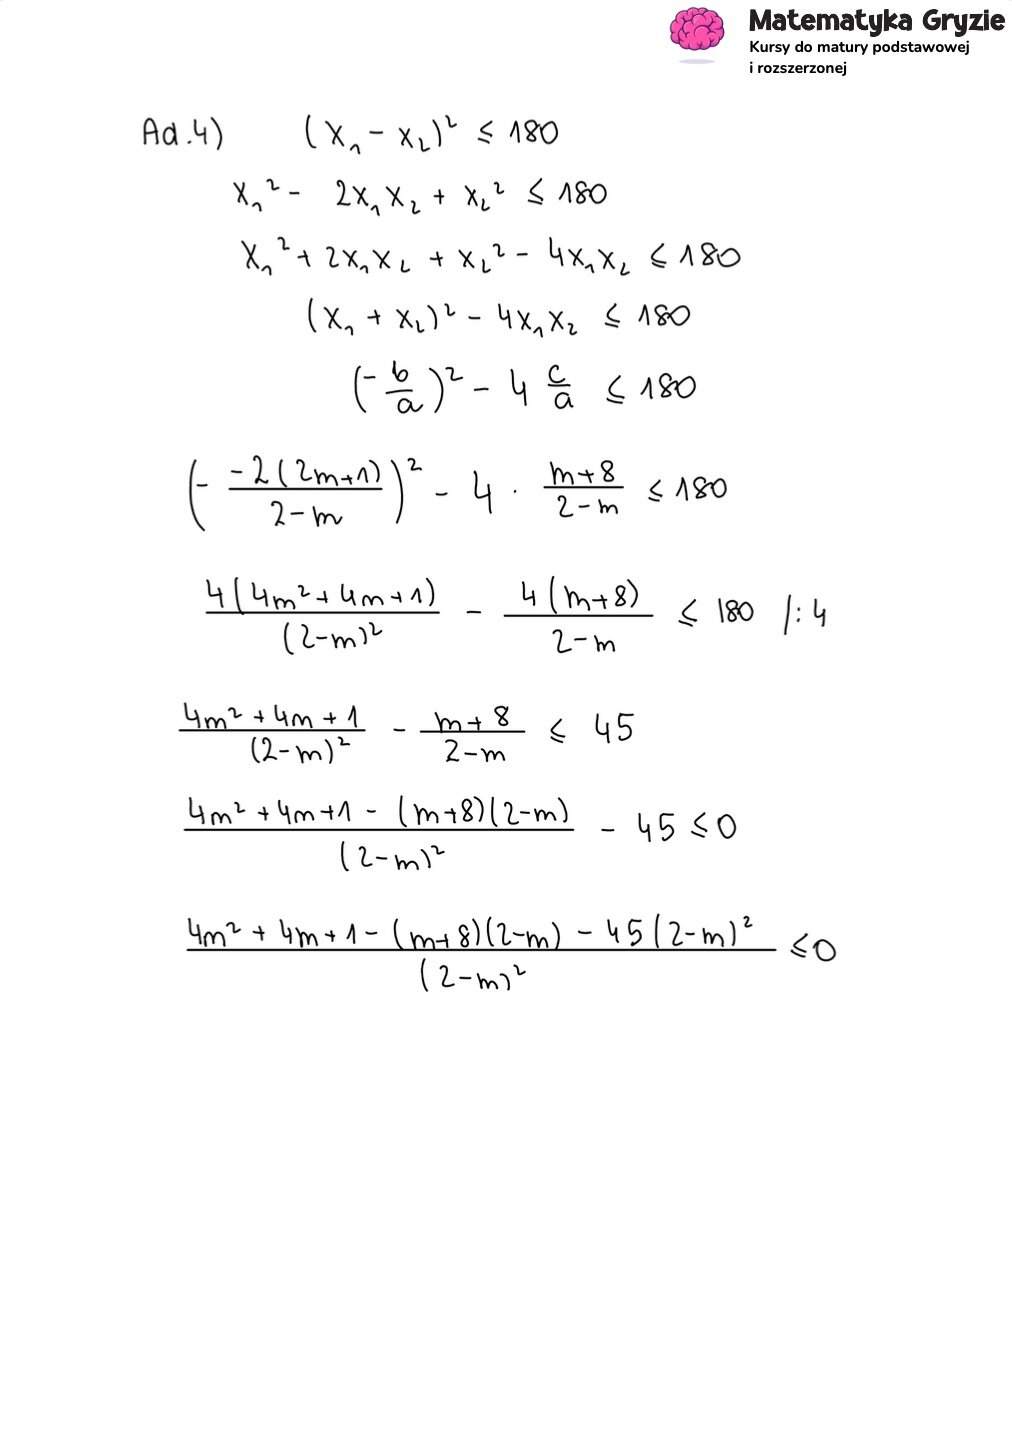 Matematyka Gryzie
Kursy do matury podstawowej
i rozszerzonej
Ad.4) (x₁ - x₂)² ≤ 180
x₁² - 2x₁x₂ + x₂² ≤ 180
x₁² + 2x₁x₂ + x₂² - 4x₁x₂ ≤ 180
(x₁ + x₂)² - 4x₁x₂ ≤ 180
(-b/a)² - 4 c/a ≤ 180
(- -2(2m+1)/2-m)² - 4 · m+8/2-m ≤ 180
4(4m²+4m+1)/(2-m)² - 4(m+8)/2-m ≤ 180 /:4
4m²+4m+1/(2-m)² - m+8/2-m ≤ 45
4m²+4m+1-(m+8)(2-m)/(2-m)² - 45 ≤ 0
4m²+4m+1-(m+8)(2-m)-45(2-m)²/(2-m)² ≤ 0